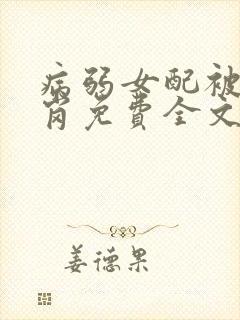 病弱女配被
岗免费全文
姜德果